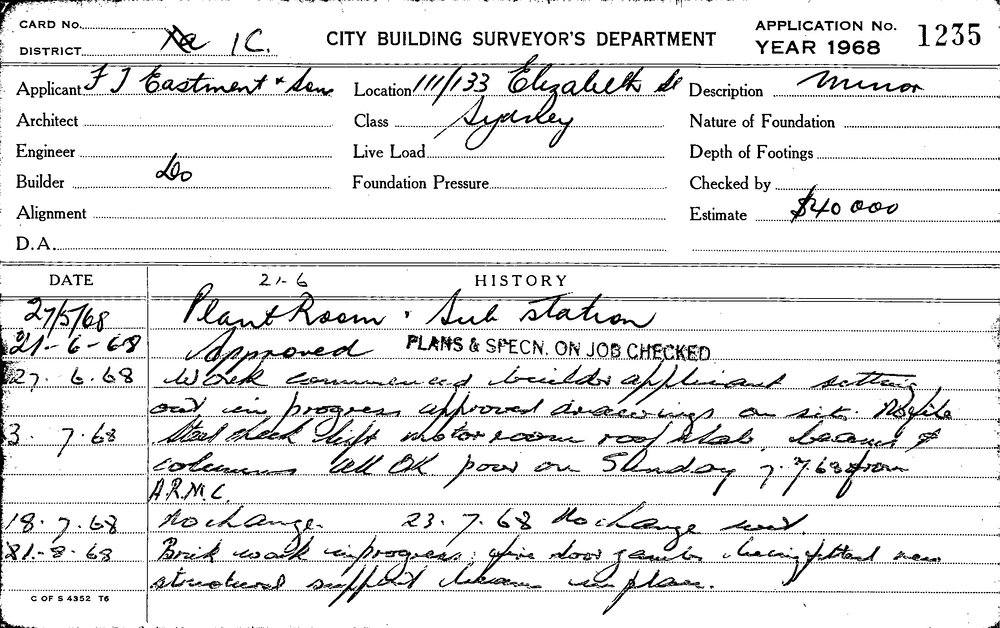 CARD No.
DISTRICT 1C.
CITY BUILDING SURVEYOR'S DEPARTMENT
APPLICATION No. 1235
YEAR 1968
Applicant F J Eastment & Sons
Location 111/133 Elizabeth St
Description Minor
Architect
Class Sydney
Nature of Foundation
Engineer
Live Load
Depth of Footings
Builder Do
Foundation Pressure
Checked by
Alignment
Estimate $40 000
D.A.
DATE 21-6 HISTORY
27/5/68 Plant Room & Sub station
21-6-68 Approved PLANS & SPECN. ON JOB CHECKED
27.6.68 Work commenced builder applicant setting
out in progress approved drawings on site.
3.7.68 Steel check lift motor room roof slab beams &
columns all OK pour on Sunday 7.7.68 from
A.R.M.C.
18.7.68 No change. 23.7.68 No change
21-8-68 Brick work in progress fire door jambs being fitted new
structural support beams in place.
C OF S 4352 T6